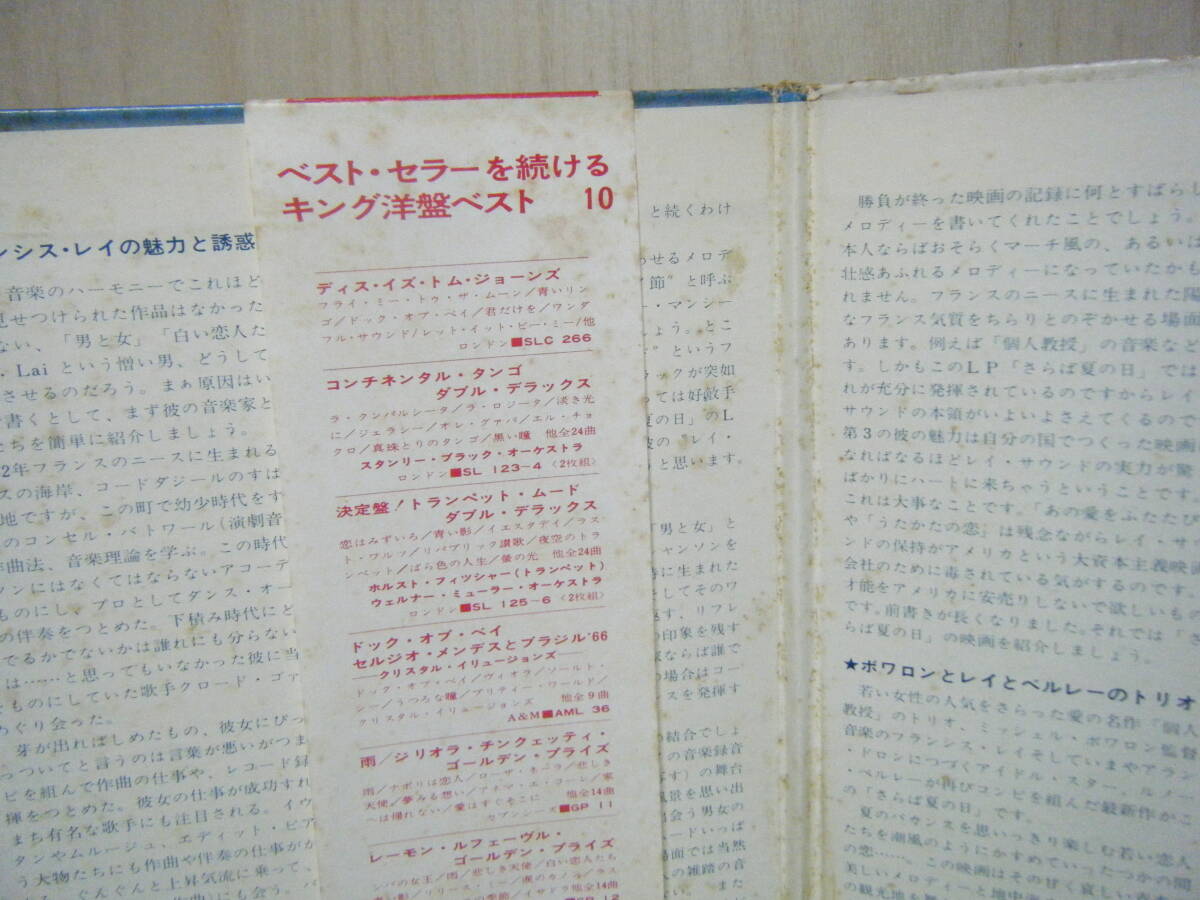 ンシス・レイの魅力と誘惑
音楽のハーモニーでこれほど
見せつけられた作品はなかった
ない、「男と女」「白い恋人た
・Lai という憎い男、どうして
させるのだろう。まぁ原因はい
で書くとして、まず彼の音楽家と
たちを簡単に紹介しましょう。
2年フランスのニースに生まれる
スの海岸、コードダジールのすば
地ですが、この町で幼少時代をす
のコンセル・バトワール(演劇音
作曲法、音楽理論を学ぶ。この時代
ソンにはなくてはならないアコーデ
ものにし、プロとしてダンス・オー
の伴奏をつとめた。下積み時代にど
でるかでないかは誰れにも分らない
は……と思ってもいなかった彼に当
ものにしていた歌手クロード・ゴァ
めぐり会った。
芽が出ればしめたもの、彼女にぴっ
っついてと言うのは言葉が悪いがつま
ビを組んで作曲の仕事や、レコード録
揮をつとめた。彼女の仕事が成功すれ
まち有名な歌手にも注目される。イヴ
タンやムルージュ、エディット・ピア
う大物たちにも作曲や伴奏の仕事がか
ぐんぐんと上昇気流に乗って、
ベスト・セラーを続ける
キング洋盤ベスト 10
ディス・イズ・トム・ジョーンズ
フライ・ミー・トゥ・ザ・ムーン/青いリン
ゴ/ドック・オブ・ベイ/君だけを/ワンダ
フル・サウンド/レット・イット・ビー・ミー/他
ロンドン■SLC 266
コンチネンタル・タンゴ
ダブル・デラックス
ラ・クンパルシータ/ラ・ロジータ/淡き光
に/ジェラシー/オレ・グァパ/エル・チョ
クロ/真珠とりのタンゴ/黒い瞳 他全24曲
スタンリー・ブラック・オーケストラ
ロンドン■SL 123-4 〈2枚組〉
決定盤!トランペット・ムード
ダブル・デラックス
恋はみずいろ/青い影/イエスタデイ/ラス
ト・ワルツ/リパブリック讃歌/夜空のトラ
ンペット/ばら色の人生/蛍の光 他全24曲
ホルスト・フィッシャー(トランペット)
ウェルナー・ミューラー・オーケストラ
ロンドン■SL 125-6 〈2枚組〉
ドック・オブ・ベイ
セルジオ・メンデスとブラジル'66
―クリスタル・イリュージョンズ―
ドック・オブ・ベイ/ヴィオラ/ソールト・
シー/うつろな瞳/プリティー・ワールド/
クリスタル・イリュージョンズ 他全9曲
A&M■AML 36
雨/ジリオラ・チンクェッティ・
ゴールデン・プライズ
雨/ナポリは恋人/ローザ・ネニラ/悲しき
天使/夢みる想い/アネマ・エ・コーレ/家
へは帰れない/愛はすぐそこに 他全14曲
セブンシーズ■GP 11
レーモン・ルフェーヴル・
ゴールデン・プライズ
シバの女王/雨/悲しき天使/白い恋人たち
と続くわけ
わせるメロデ
節"と呼ぶ
ー・マンシー
しょう。とこ
"というフ
ラックが突如
っては好敵手
夏の日」のL
彼の"レイ・
りと思います。
「男と女」と
シャンソンを
時に生まれた
としてそのワ
返す、リフレ
の印象を残す
家ならば誰で
の場合はコー
スを発揮す
の結合でしょ
の音楽録音
す)の舞台
風景を思い出
出会う男女の
ードいっぱ
場面では当然
の雑踏の音
い。また
勝負が終った映画の記録に何とすばらし
メロディーを書いてくれたことでしょう。
本人ならばおそらくマーチ風の、あるいは
壮感あふれるメロディーになっていたかも
れません。フランスのニースに生まれた陽
なフランス気質をちらりとのぞかせる場面
あります。例えば「個人教授」の音楽など
す。しかもこのLP「さらば夏の日」では
れが充分に発揮されているのですからレイ
サウンドの本領がいよいよさえてくるので
第3の彼の魅力は自分の国でつくった映画
なればなるほどレイ・サウンドの実力が驚
ばかりにハートに来ちゃうということです
これは大事なことです。「あの愛をふたたび
や「うたかたの恋」は残念ながらレイ・サ
ンドの保持がアメリカという大資本主義映画
会社のために毒されている気がするのです。
才能をアメリカに安売りしないで欲しいもの
です。前書きが長くなりました。それでは「さ
らば夏の日」の映画を紹介しましょう。
★ボワロンとレイとベルレーのトリオ
若い女性の人気をさらった愛の名作「個人
教授」のトリオ、ミッシェル・ボワロン監督
音楽のフランシス・レイそしていまやアラン
・ドロンにつづくアイドル・スター、ルノー
・ベルレーが再びコンビを組んだ最新作がこ
の「さらば夏の日」です。
夏のバカンスを思いっきり楽しむ若い恋人
たちを潮風のようにかすめていったつかの間
の恋……。この映画はその甘く哀しい
美しいメロディーと地中海
の観光地を舞